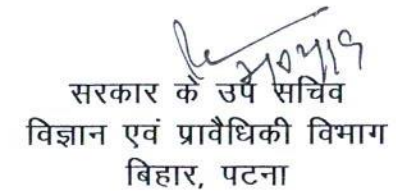 सरकार के उप सचिव
विज्ञान एवं प्रावैधिकी विभाग
बिहार, पटना